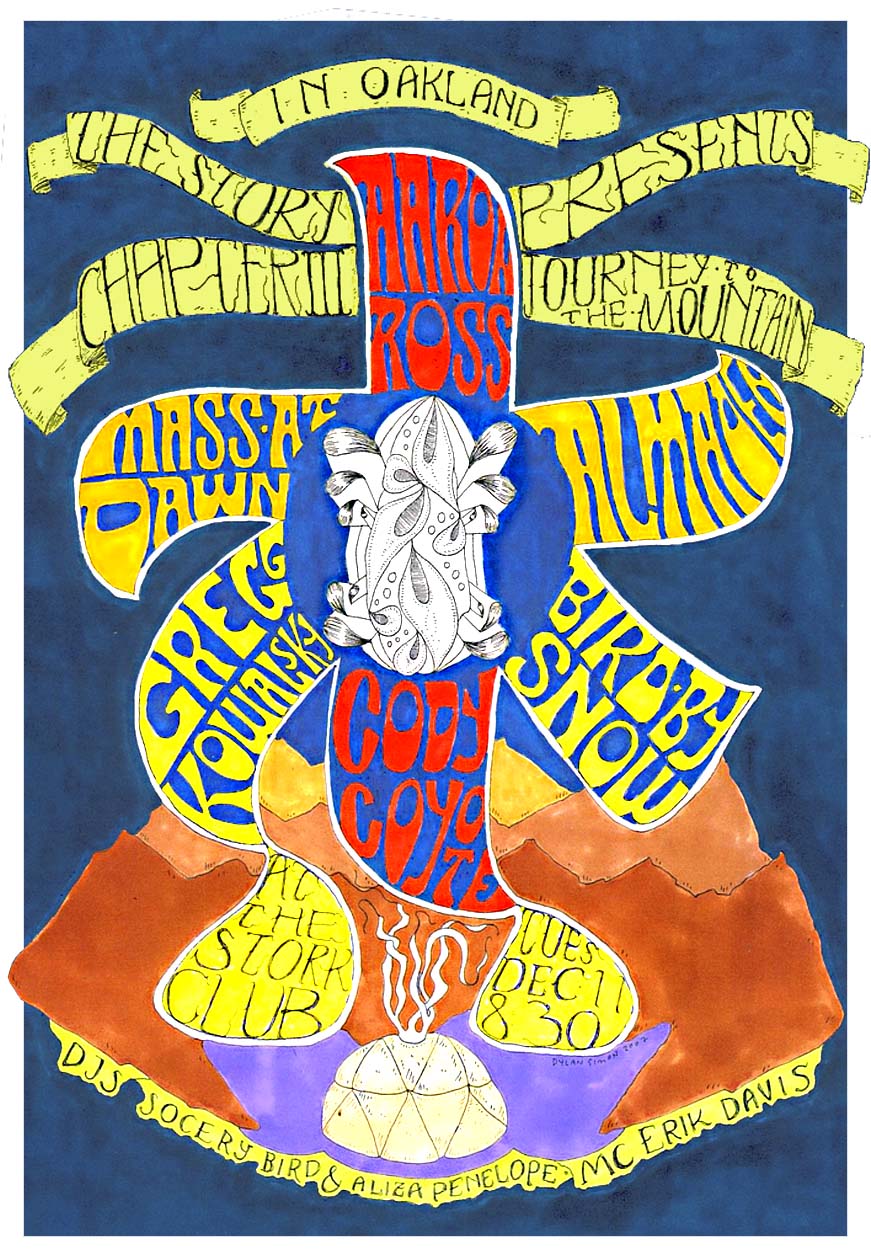 IN OAKLAND
THE STORY PRESENTS
CHAPTER III JOURNEY · TO
THE · MOUNTAIN
AARON
ROSS
MASS · AT
DAWN
GREGG
KOWALSKY
BIRD · BY
SNOW
CODY
COYO
TE
AT
THE
STORK
CLUB
TUES
DEC · 11
8 30
DYLAN SIMON 2007
DJS SOCERY BIRD & ALIZA PENELOPE · MC ERIK DAVIS